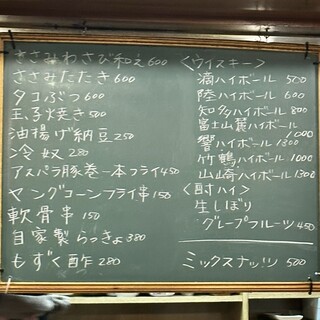 ささみわさび和え600
ささみたたき600
タコぶつ600
玉子焼き500
油揚げ納豆250
冷奴280
アスパラ豚巻一本フライ450
ヤングコーンフライ串150
軟骨串150
自家製らっきょ380
もずく酢280
〈ウイスキー〉
角ハイボール500
陸ハイボール600
知多ハイボール800
富士山麓ハイボール1000
響ハイボール1300
竹鶴ハイボール1000
山崎ハイボール1300
〈酎ハイ〉
生しぼり
グレープフルーツ450
ミックスナッツ500